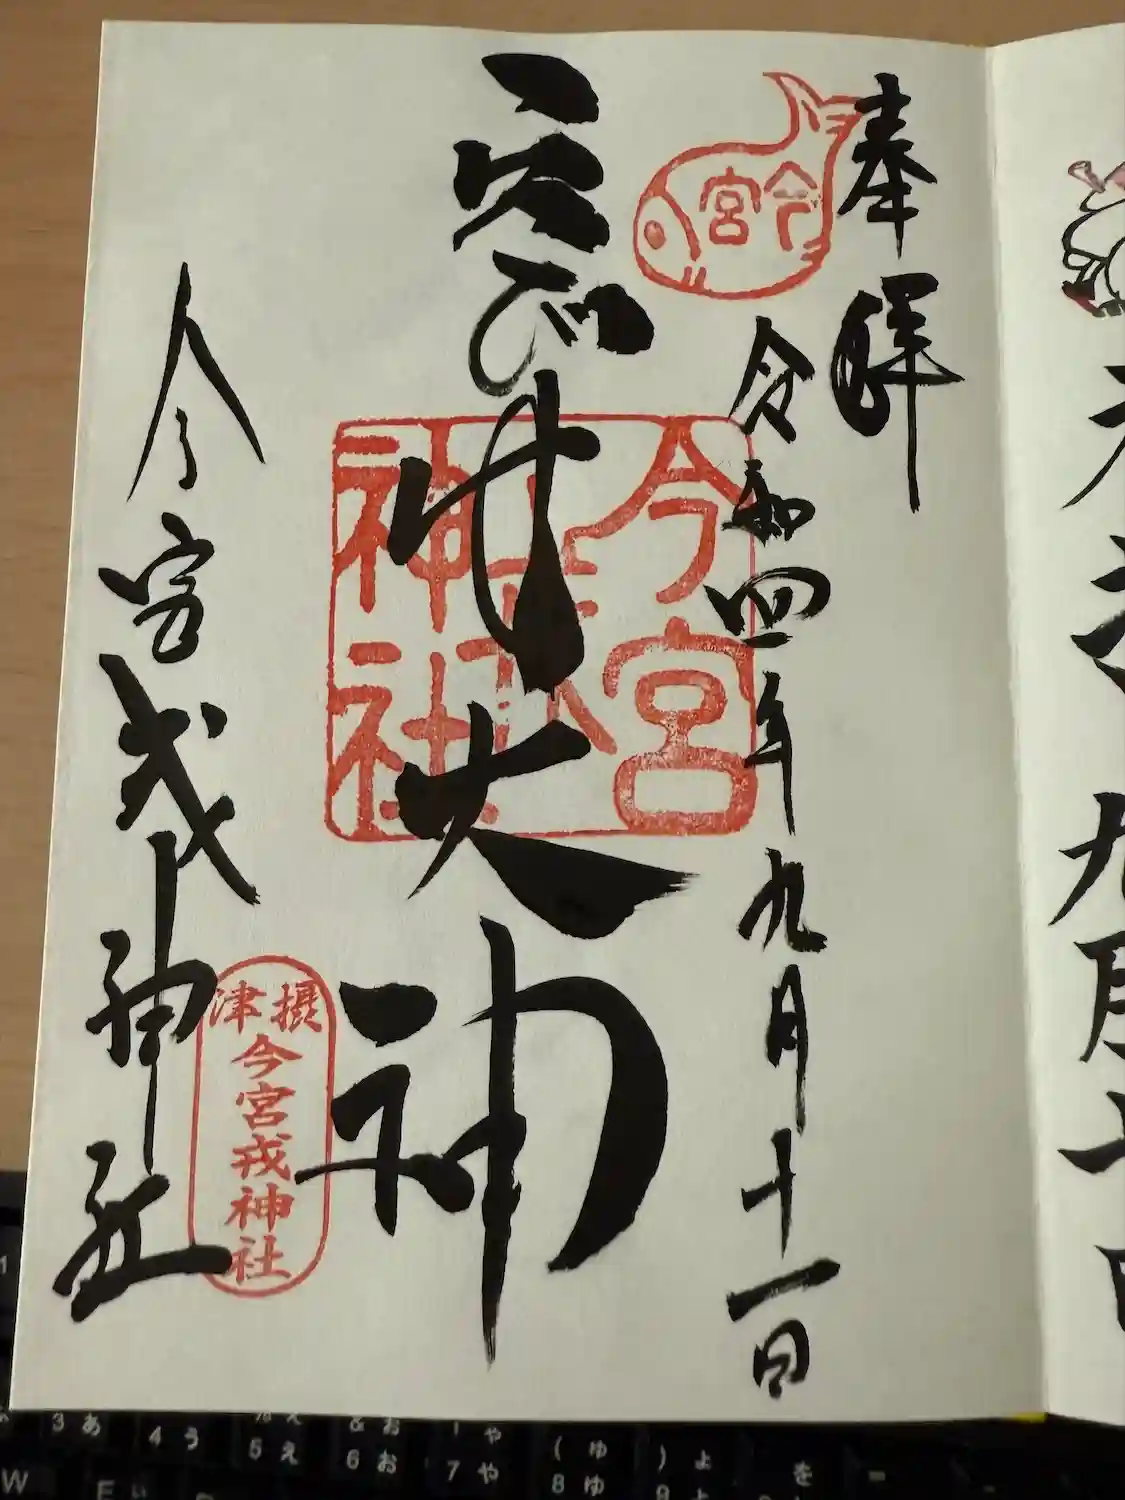 奉拝
今宮
令和四年九月十一日
今宮
神社
大神
今宮戎神社
摂津
今宮戎神社
九月十
3 あ
4 う
5 え
6 お
7 や
8 ゆ
W
E